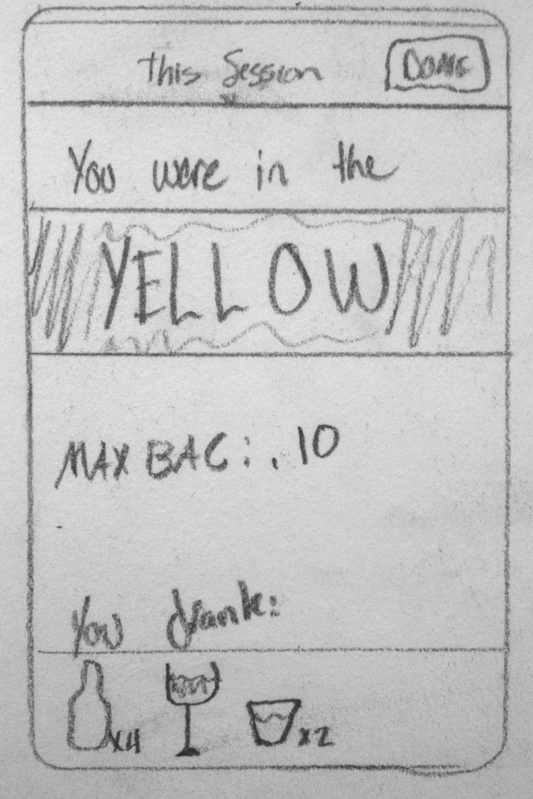 this Session DONE
You were in the
YELLOW
MAX BAC: .10
You drank:
x4 x2